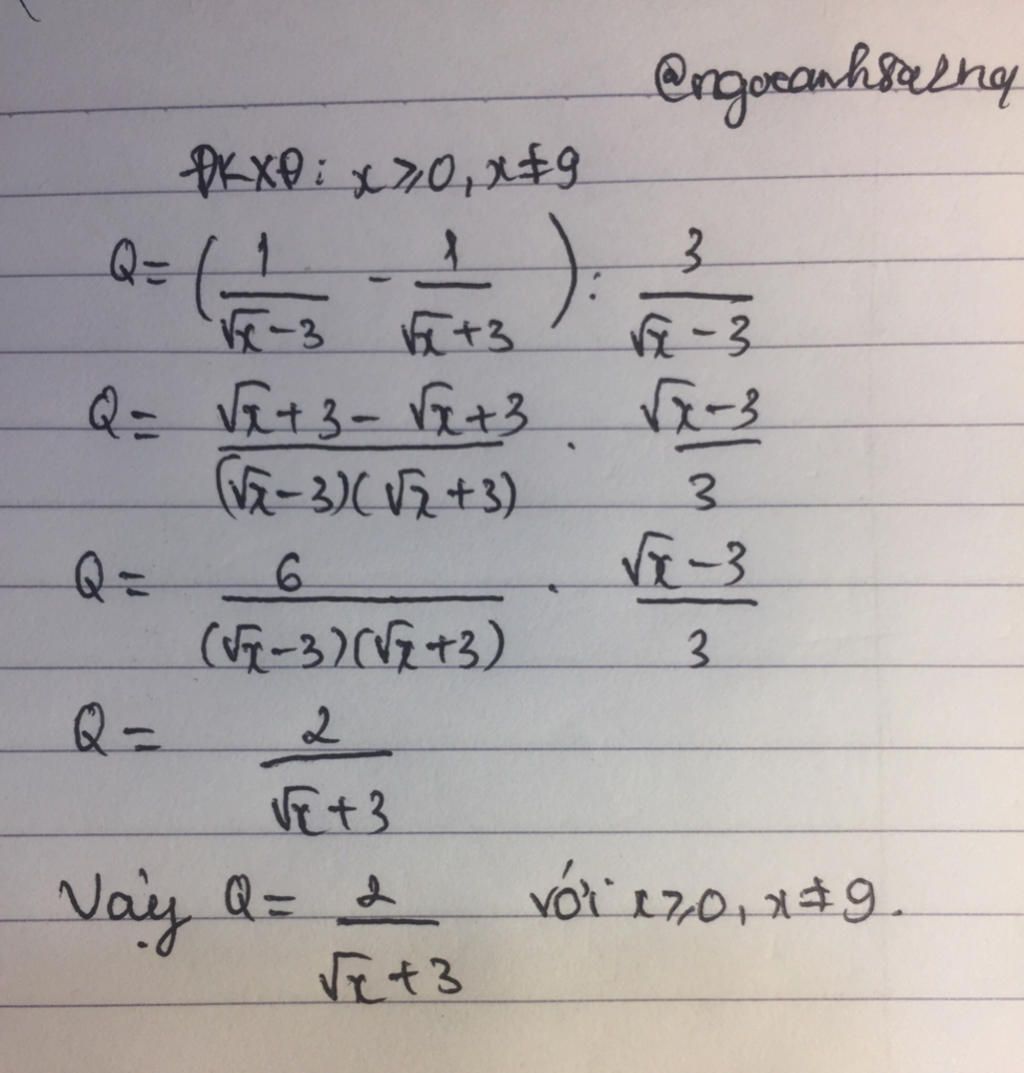 @ngocanh8a2hq
ĐKXĐ: x ≥ 0, x ≠ 9
Q = (1/(√x - 3) - 1/(√x + 3)) : 3/(√x - 3)
Q = (√x + 3 - √x + 3)/((√x - 3)(√x + 3)) . (√x - 3)/3
Q = 6/((√x - 3)(√x + 3)) . (√x - 3)/3
Q = 2/(√x + 3)
Vậy Q = 2/(√x + 3) với x ≥ 0, x ≠ 9.